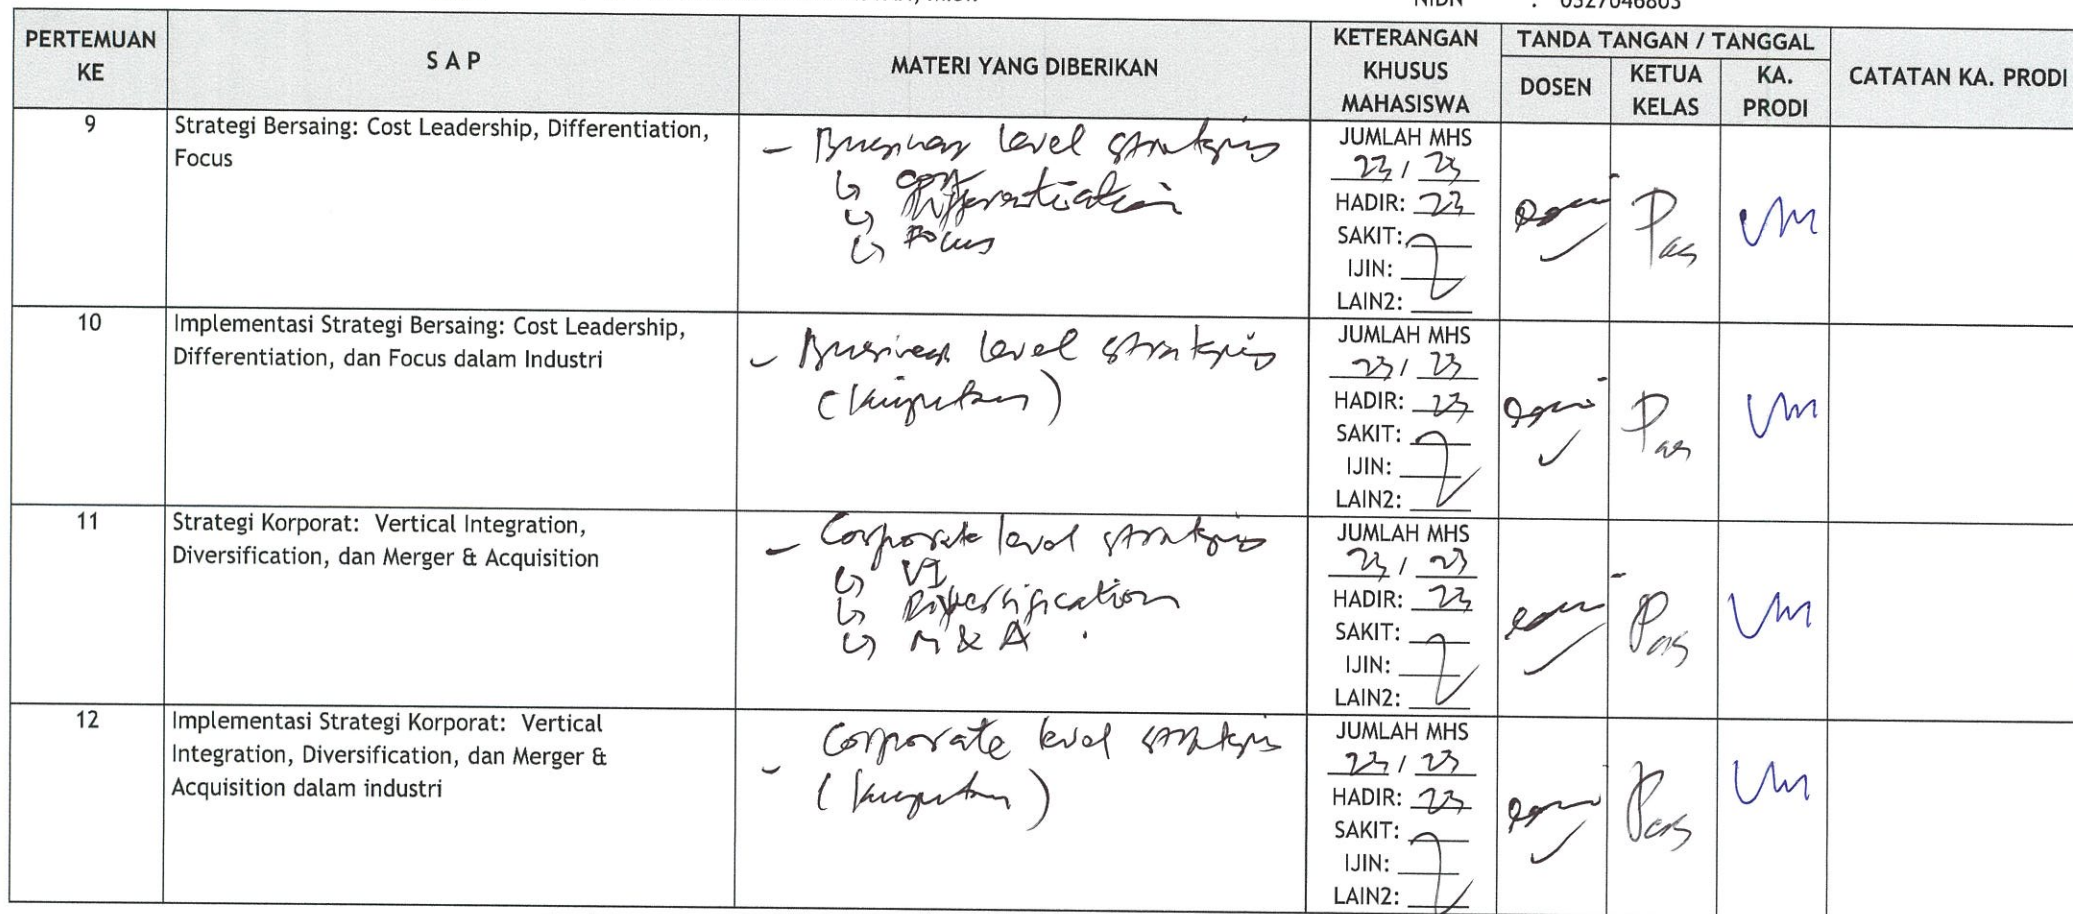 NIDN : 0327046803
PERTEMUAN KE
S A P
MATERI YANG DIBERIKAN
KETERANGAN KHUSUS MAHASISWA
TANDA TANGAN / TANGGAL
DOSEN
KETUA KELAS
KA. PRODI
CATATAN KA. PRODI
9
Strategi Bersaing: Cost Leadership, Differentiation,
Focus
- Business level strategies
Differentiation
Focus
JUMLAH MHS
23 / 23
HADIR: 23
SAKIT:
IJIN:
LAIN2:
10
Implementasi Strategi Bersaing: Cost Leadership,
Differentiation, dan Focus dalam Industri
- Business level strategies
JUMLAH MHS
23 / 23
HADIR: 23
SAKIT:
IJIN:
LAIN2:
11
Strategi Korporat: Vertical Integration,
Diversification, dan Merger & Acquisition
- Corporate level strategies
VI
Diversification
M & A
JUMLAH MHS
23 / 23
HADIR: 23
SAKIT:
IJIN:
LAIN2:
12
Implementasi Strategi Korporat: Vertical
Integration, Diversification, dan Merger &
Acquisition dalam industri
- Corporate level strategies
JUMLAH MHS
23 / 23
HADIR: 23
SAKIT:
IJIN:
LAIN2: